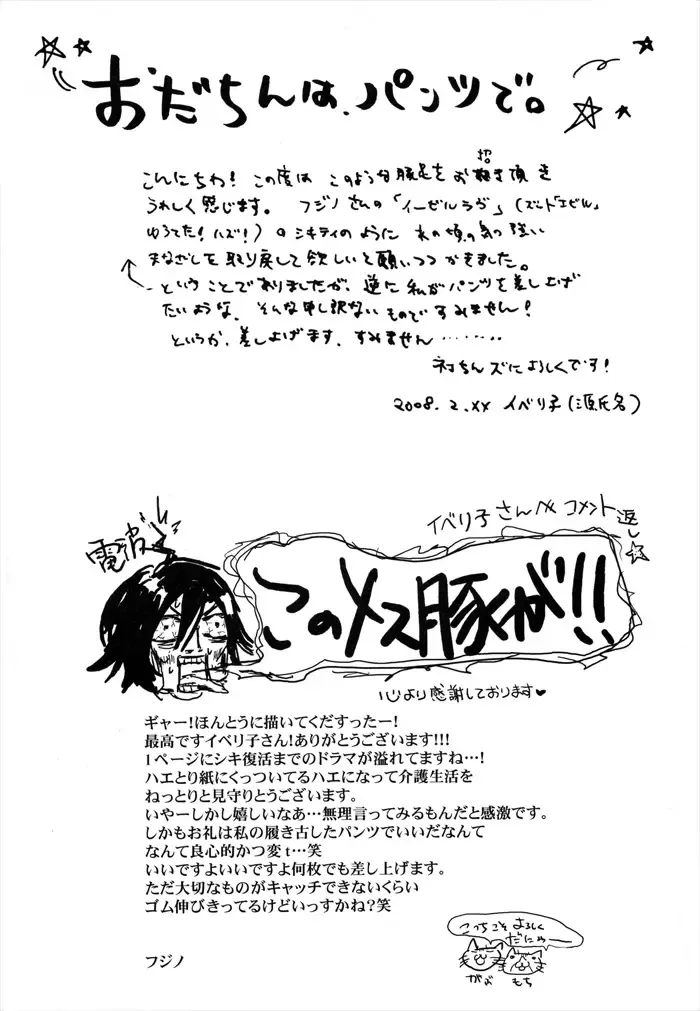 おだちんは、パンツで。
こんにちわ! この度は このような豚足をお招き頂き
うれしく感じます。 フジノさんの「イーゼルラヴ」(ズットエゼル
ゆうてた!ハズ!)の シキティのように あの頃の気の強い
まなざしを取り戻して欲しいと願いつつかきました。
ということでありましたが、逆に私がパンツを差し上げ
たいような、そんな申し訳ないものですみません!
というか、差し上げます、すみません………
ネコちんズによろしくです!
2008.2.xx イベリ子(源氏名)
イベリ子さんへ コメント返し
電波
このメス豚が!!
心より感謝しております♥
ギャー!ほんとうに描いてくだすったー!
最高ですイベリ子さん!ありがとうございます!!!
1ページにシキ復活までのドラマが溢れてますね…!
ハエとり紙にくっついてるハエになって介護生活を
ねっとりと見守りとうございます。
いやーしかし嬉しいなあ…無理言ってみるもんだと感激です。
しかもお礼は私の履き古したパンツでいいだなんて
なんて良心的かつ変t…笑
いいですよいいですよ何枚でも差し上げます。
ただ大切なものがキャッチできないくらい
ゴム伸びきってるけどいっすかね?笑
フジノ
こっちこそよろしく
だにゃー
がぶ
もち